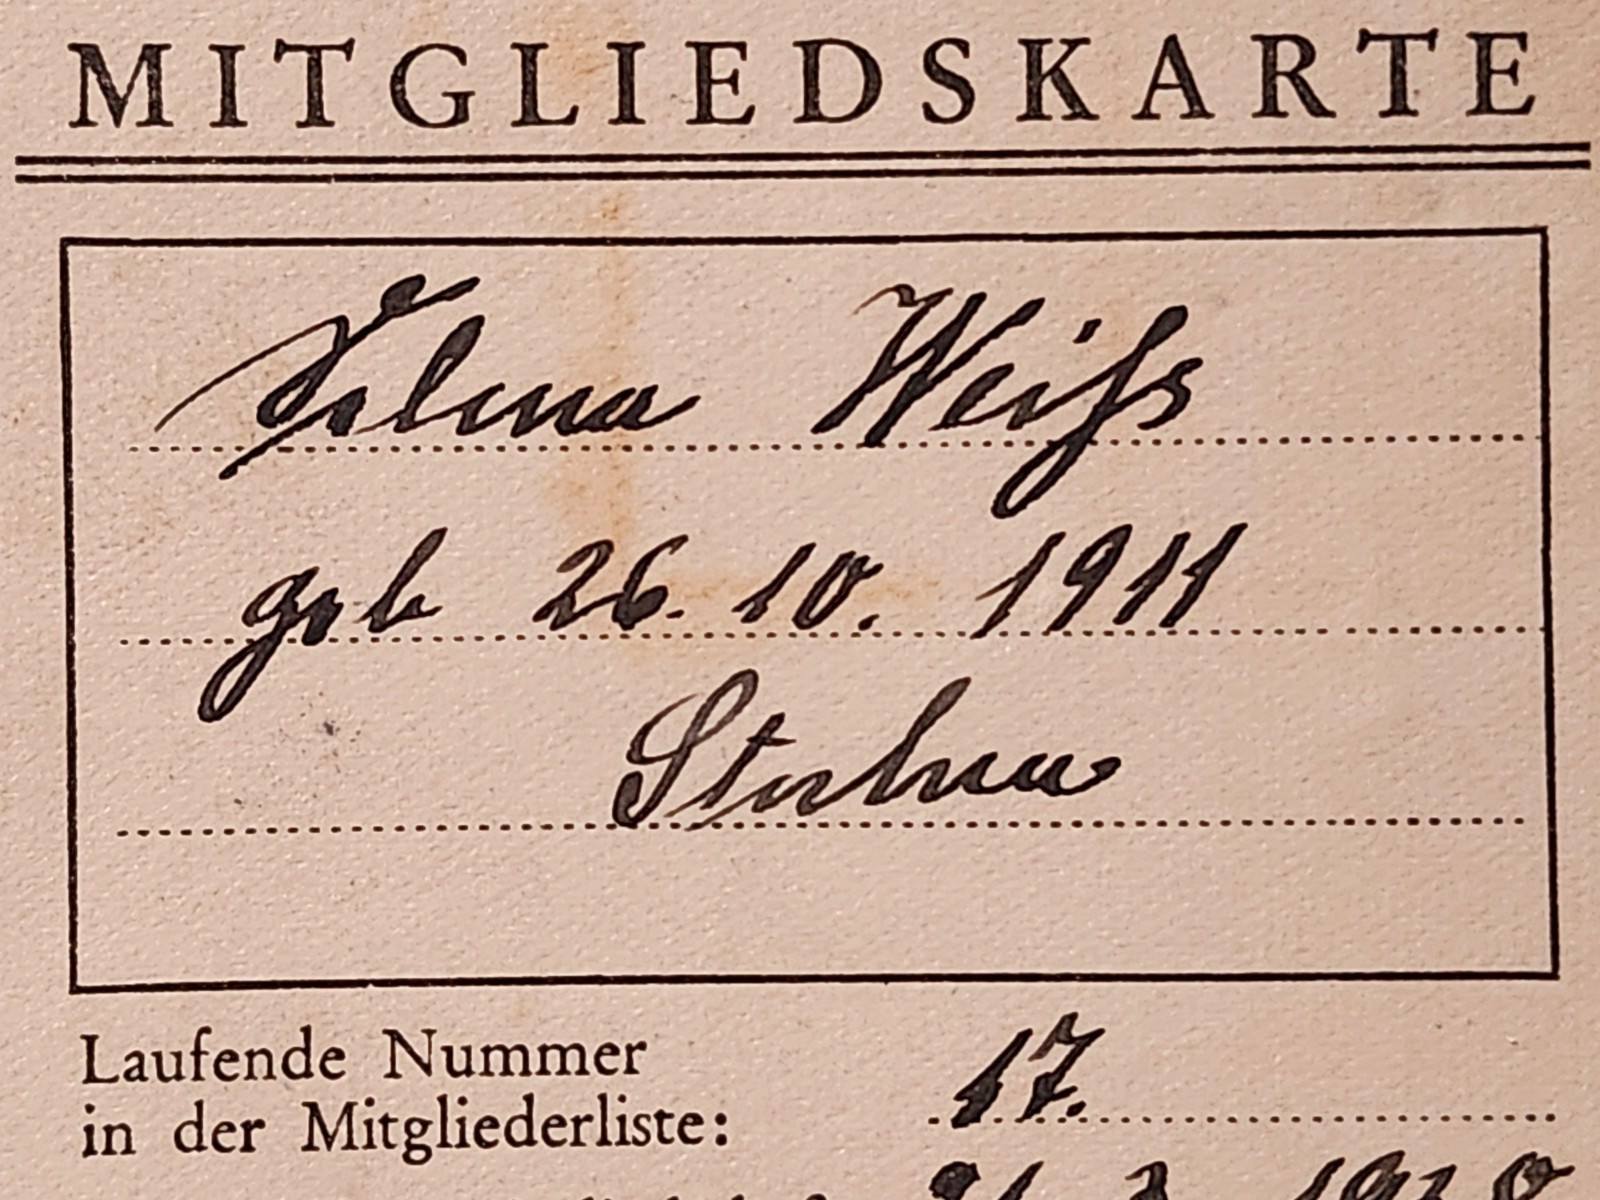 MITGLIEDSKARTE
Selma Weiß
geb 26. 10. 1911
Laufende Nummer 17.
in der Mitgliederliste: